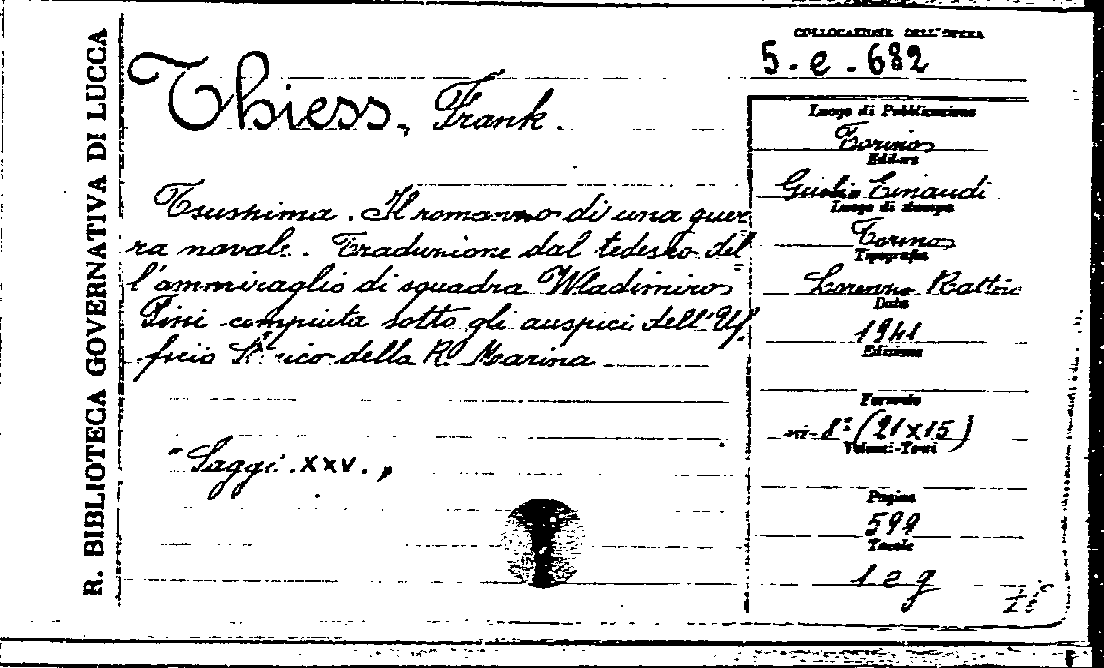 R. BIBLIOTECA GOVERNATIVA DI LUCCA
COLLOCAZIONE DELL'OPERA
5. e. 682
Thiess, Frank.
Tsushima. Il romanzo di una guer
ra navale. Traduzione dal tedesco del
l'ammiraglio di squadra Wladimiro
Pini compiuta sotto gli auspici dell'Uf
ficio Storico della R. Marina
"Saggi. XXV."
Luogo di Pubblicazione
Torino
Editore
Giulio Einaudi
Luogo di stampa
Torino
Tipografia
Lorenzo Rattero
Data
1941
Edizione
Formato
in-8° (21x15)
Volumi-Tomi
Pagine
599
Tavole
leg